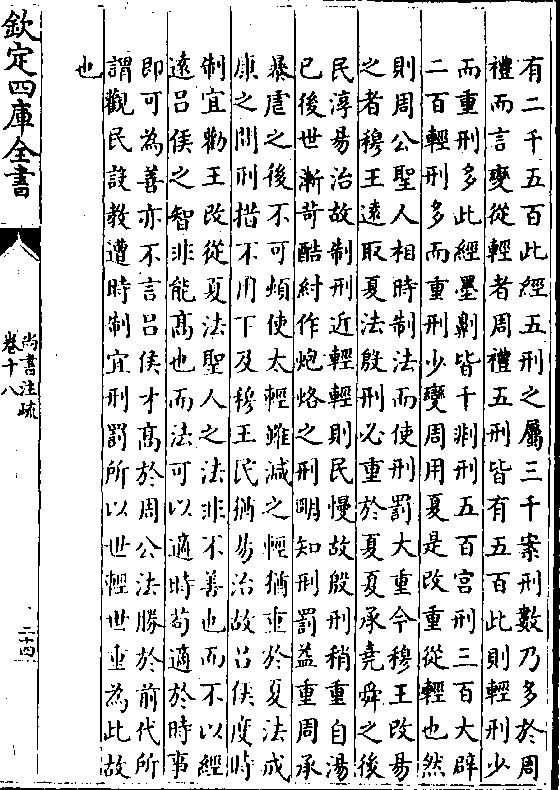 有二千五百此經五刑之屬三千案刑數乃多於周
禮而言變從輕者周禮五刑皆有五百此則輕刑少
而重刑多此經墨劓皆千剕刑五百宮刑三百大辟
二百輕刑多而重刑少變周用夏是改重從輕也然
則周公聖人相時制法而使刑罰大重今穆王改易
之者穆王遠取夏法殷刑必重於夏夏承堯舜之後
民淳易治故制刑近輕輕則民慢故殷刑稍重自湯
已後世漸苛酷紂作炮烙之刑明知刑罰益重周承
暴虐之後不可頓使太輕雖減之輕猶重於夏法成
康之間刑措不用下及穆王民猶易治故呂侯度時
制宜勸王改從夏法聖人之法非不善也而不以經
遠呂侯之智非能高也而法可以適時苟適於時事
即可為善亦不言呂侯才高於周公法勝於前代所
謂觀民設教遭時制宜刑罰所以世輕世重為此故
也
欽定四庫全書
尚書注疏
卷十八
二十四